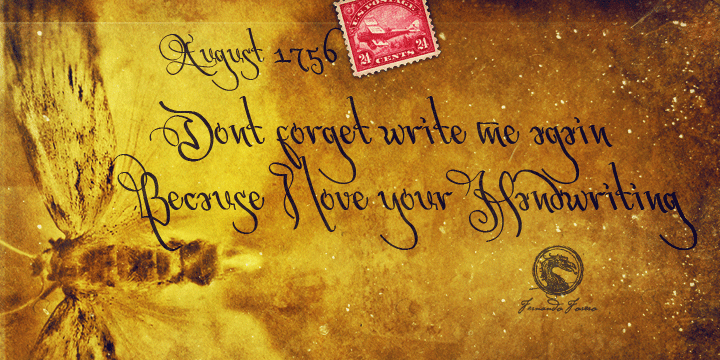 August 1756
U.S. POSTAGE
24 24
CENTS
Dont forget write me again
Because I love your Handwriting
Fernando